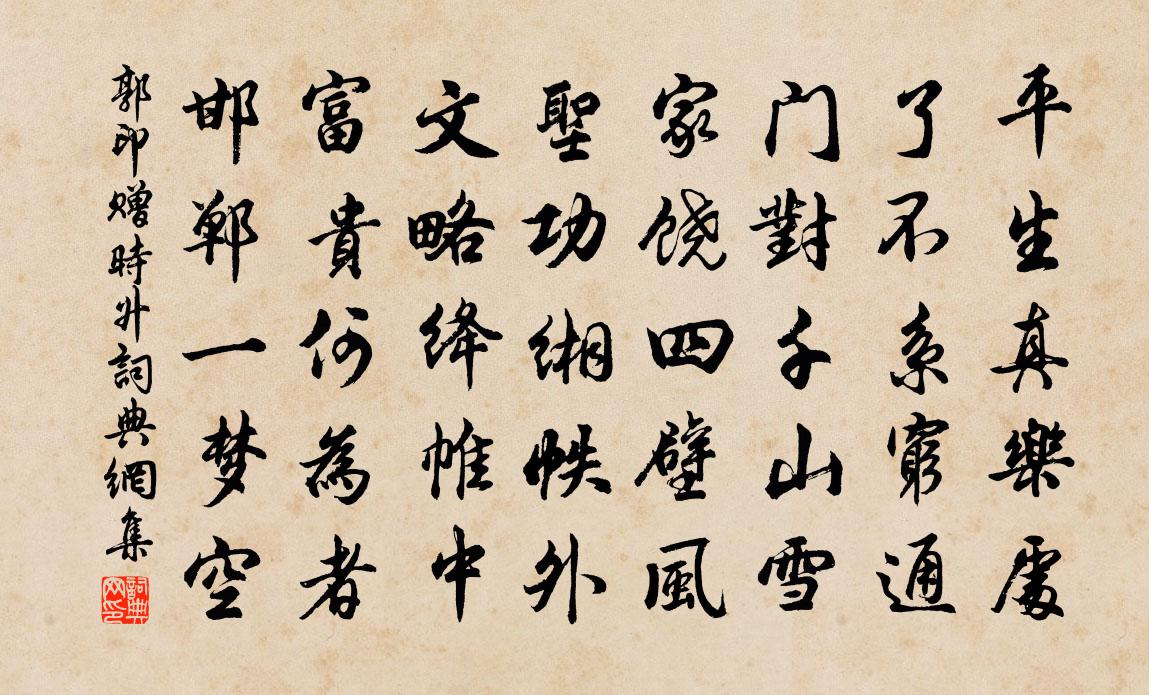 平生真樂處
了不系窮通
门對千山雪
家饶四壁風
聖功缃帙外
文略绛帷中
富貴何為者
邯郸一梦空
郭印赠時升詞典網集
詞典网印